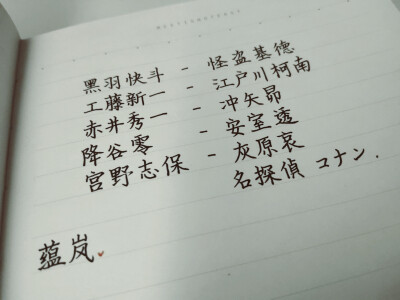 黑羽快斗 - 怪盗基德
工藤新一 - 江户川柯南
赤井秀一 - 冲矢昴
降谷零 - 安室透
宫野志保 - 灰原哀
名探偵 コナン.
蕴岚